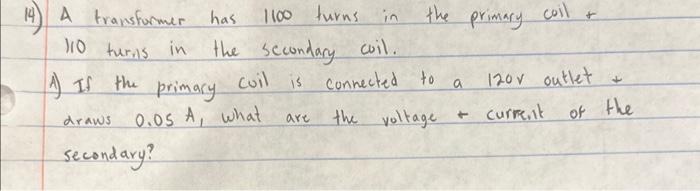 14) A transformer has 1100 turns in the primary coil +
110 turns in the secondary coil.
A) If the primary coil is connected to a 120v outlet +
draws 0.05 A, what are the voltage + current of the
secondary?